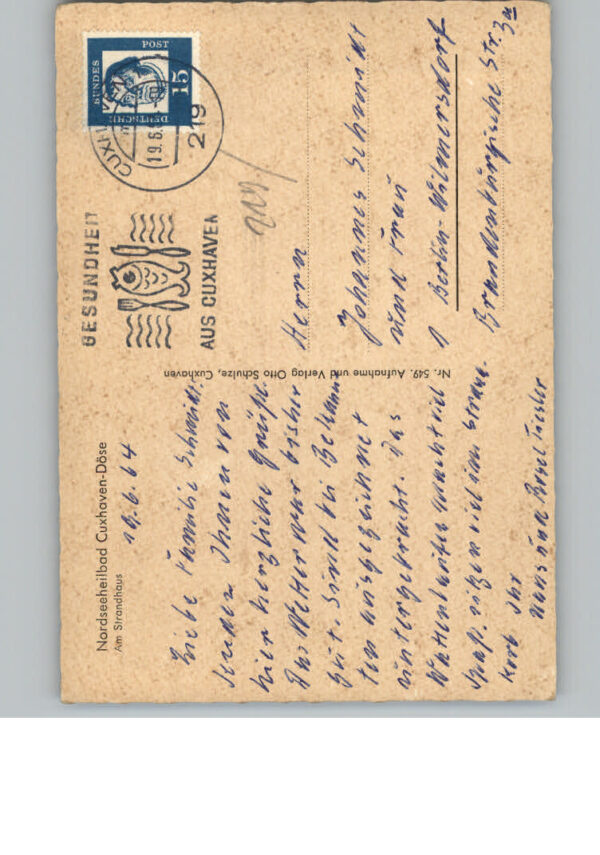 Nordseeheilbad Cuxhaven-Döse
Am Strandhaus
19.6.64
Liebe Familie Schmidt.
senden Ihnen von
hier herzliche Grüße.
Das Wetter war bisher
gut. Sind bei Bekann
ten ausgezeichnet
untergebracht. Das
Wattenlaufen macht viel
Spaß. sitzen viel im Strand-
korb Ihr
und
Nr. 549. Aufnahme und Verlag Otto Schulze, Cuxhaven
GESUNDHEIT
AUS CUXHAVEN
CUXHAVEN
19.6.
219
DEUTSCHE
BUNDES
POST
15
Herrn
Johannes Schmidt
und Frau
1 Berlin-Wilmersdorf
Brandenburgische Str. 3a